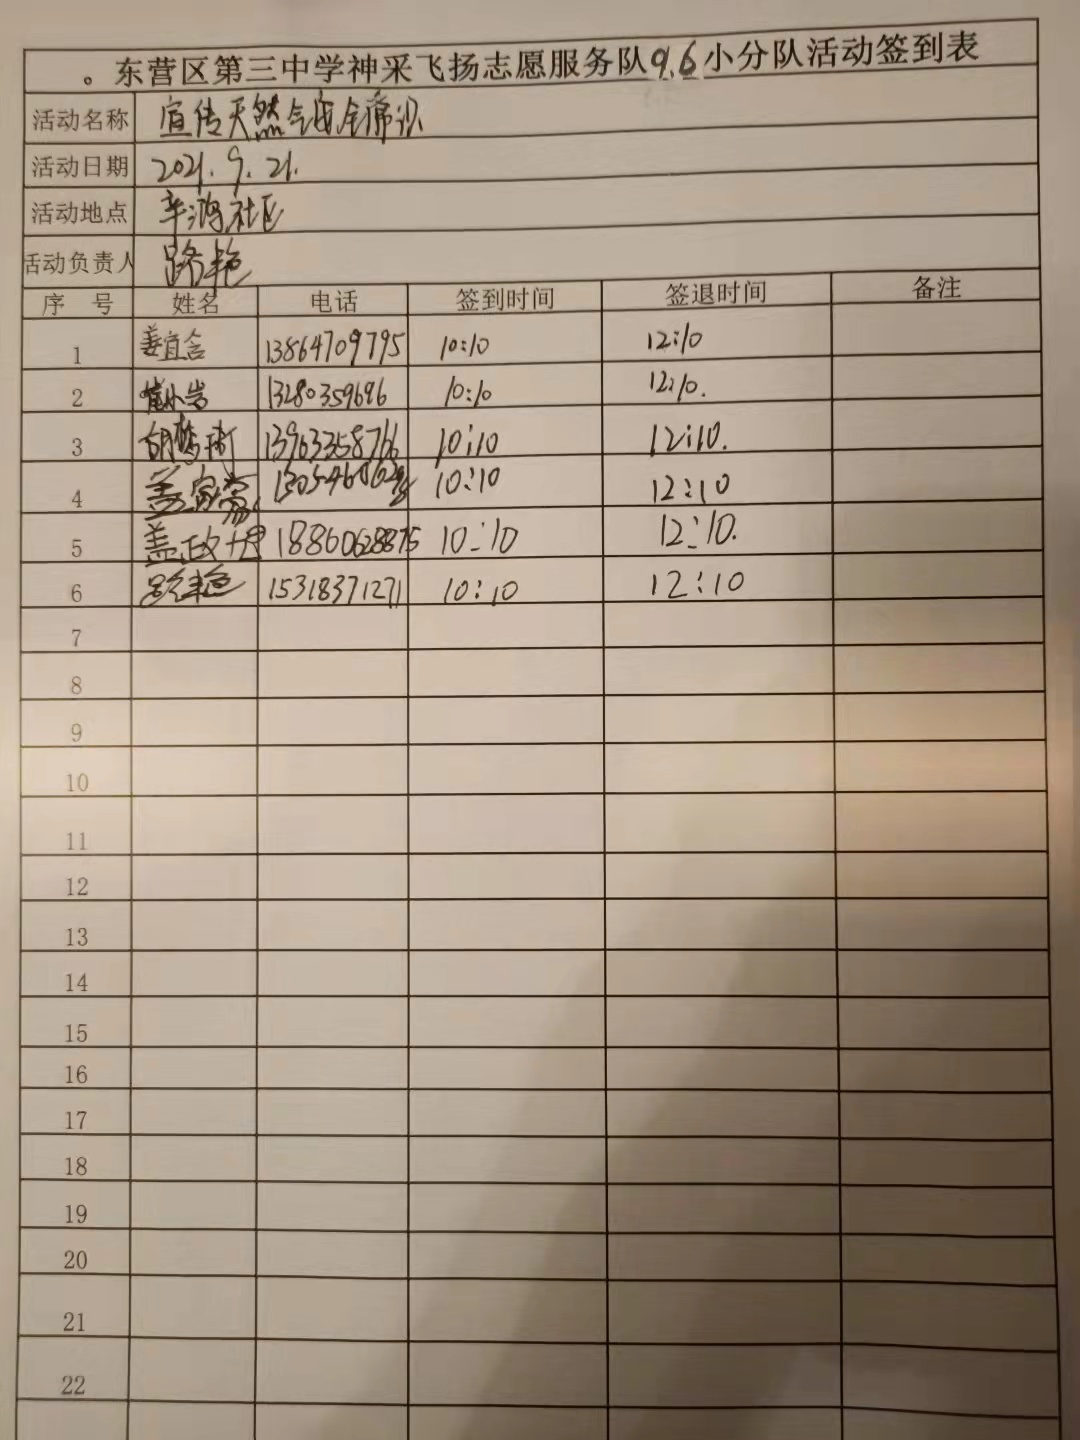 。东营区第三中学神采飞扬志愿服务队9.6小分队活动签到表
活动名称 宣传天然气安全常识
活动日期 2021.9.21.
活动地点 辛鸿社区
活动负责人 路艳
序 号 姓名 电话 签到时间 签退时间 备注
1 姜宜含 13864709795 10:10 12:10
2 崔小岩 13280359696 10:10 12:10.
3 13963358766 10:10 12:10.
4 10:10 12:10
5 18860628875 10:10 12:10.
6 路艳 15318371271 10:10 12:10
7
8
9
10
11
12
13
14
15
16
17
18
19
20
21
22